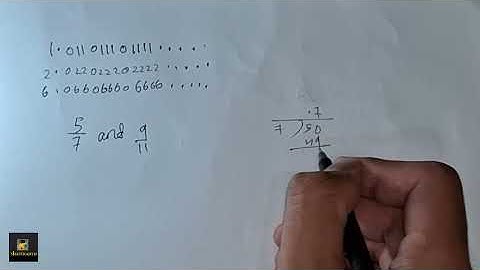 1.011011101111.....
2.022022202222.....
6.066066606666.....
5/7 and 9/11
.7
7)50
49